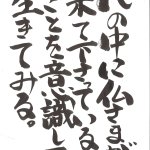 の中に仏さまが
来て下さっている
ことを意識し
生きてみる。